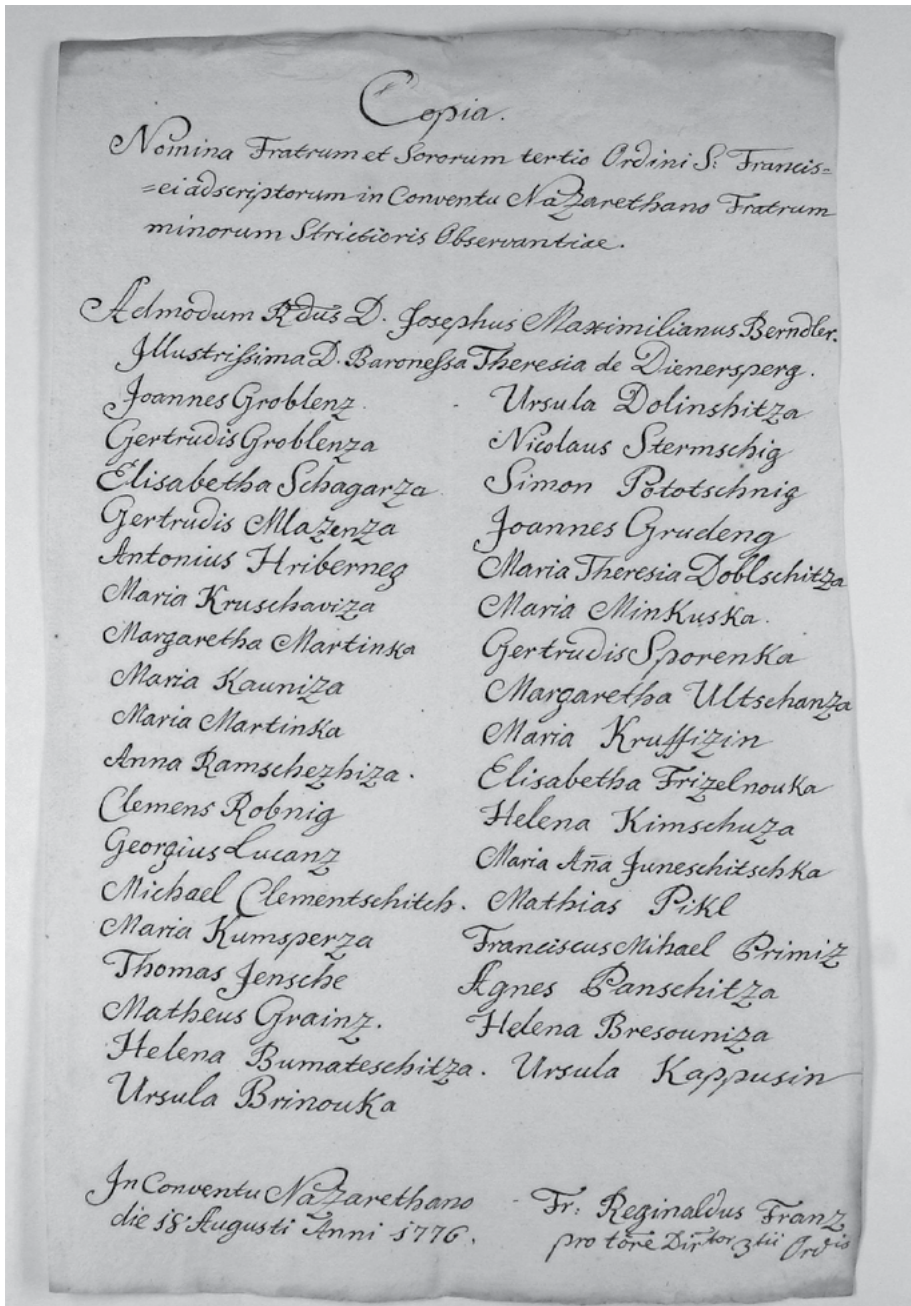 Copia.
Nomina Fratrum et Sororum tertio Ordini S: Francis=
=ci adscriptorum in Conventu Nazarethano Fratrum
minorum Strictioris Observantiae.
Admodum Rdus D. Josephus Maximilianus Berndler.
Illustrissima D. Baronessa Theresia de Dienersperg.
Joannes Groblenz.
Gertrudis Groblenza
Elisabetha Schagarza
Gertrudis Mlazenza
Antonius Hriberneg
Maria Kruschaviza
Margaretha Martinka
Maria Kauniza
Maria Martinka
Anna Ramschezhiza.
Clemens Robnig
Georgius Lucanz
Michael Clementschitch.
Maria Kumsperza
Thomas Jensche
Matheus Grainz.
Helena Bumateschitza.
Ursula Brinouka
Ursula Dolinshitza
Nicolaus Stermschig
Simon Pototschnig
Joannes Grudeng
Maria Theresia Doblschitza
Maria Minkuska.
Gertrudis Sporenka
Margaretha Ultschanza
Maria Kruffizin
Elisabetha Frizelnouka
Helena Kimschuza
Maria Aña Juneschitschka
Mathias Pikl
Franciscus Mihael Primiz
Agnes Panschitza
Helena Bresouniza
Ursula Kappusin
In Conventu Nazarethano
die 18 Augusti Anni 1776.
Fr: Reginaldus Franz
pro tōre Dirtor 3tii Ordis